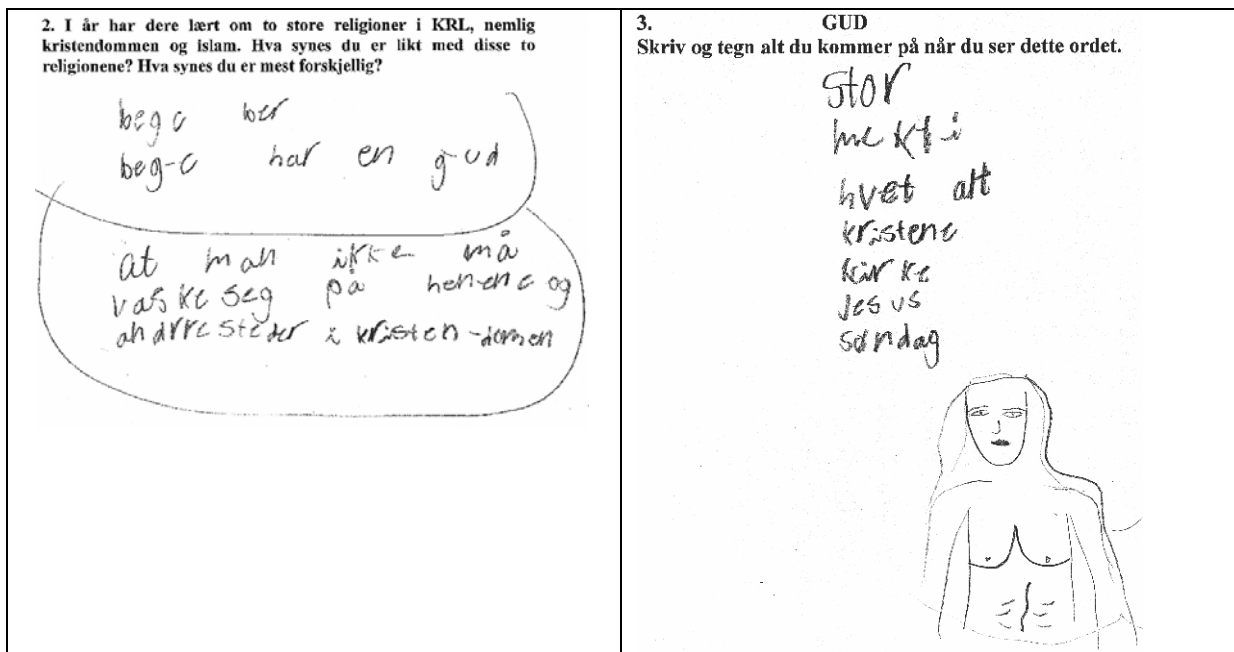 2. I år har dere lært om to store religioner i KRL, nemlig
kristendommen og islam. Hva synes du er likt med disse to
religionene? Hva synes du er mest forskjellig?
bege ber
beg-e har en gud
at man ikke må
vaske seg på henene og
andrre steder i kristen-domen
3. GUD
Skriv og tegn alt du kommer på når du ser dette ordet.
Stor
mekti
hvet alt
kristene
kirke
Jesus
søndag